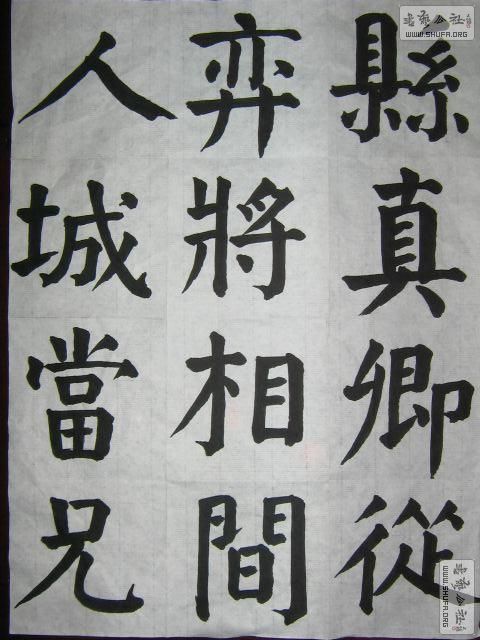 縣真卿從
弈將相間
人城當兄
書藝公社
WWW.SHUFA.ORG
書藝公社
WWW.SHUFA.ORG